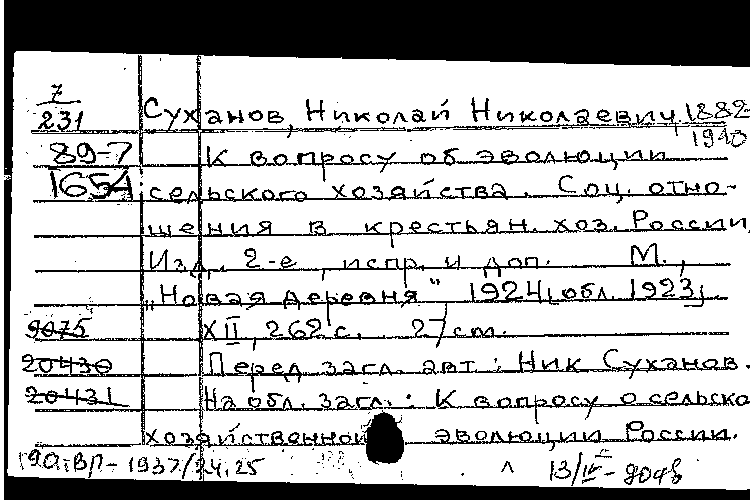 7
231
Суханов, Николай Николаевич, 1882-
1940
89-7
1654
К вопросу об эволюции
сельского хозяйства. Соц. отно-
шения в крестьян. хоз. России
Изд. 2-е, испр. и доп. М.,
"Новая деревня" 1924 [обл. 1923]
9075
XII, 262 с. 27 cm.
20430
Перед загл. авт.: Ник Суханов.
20431
На обл. загл.: К вопросу о сельско
хозяйственной эволюции России.
1937/24.25
13/IV